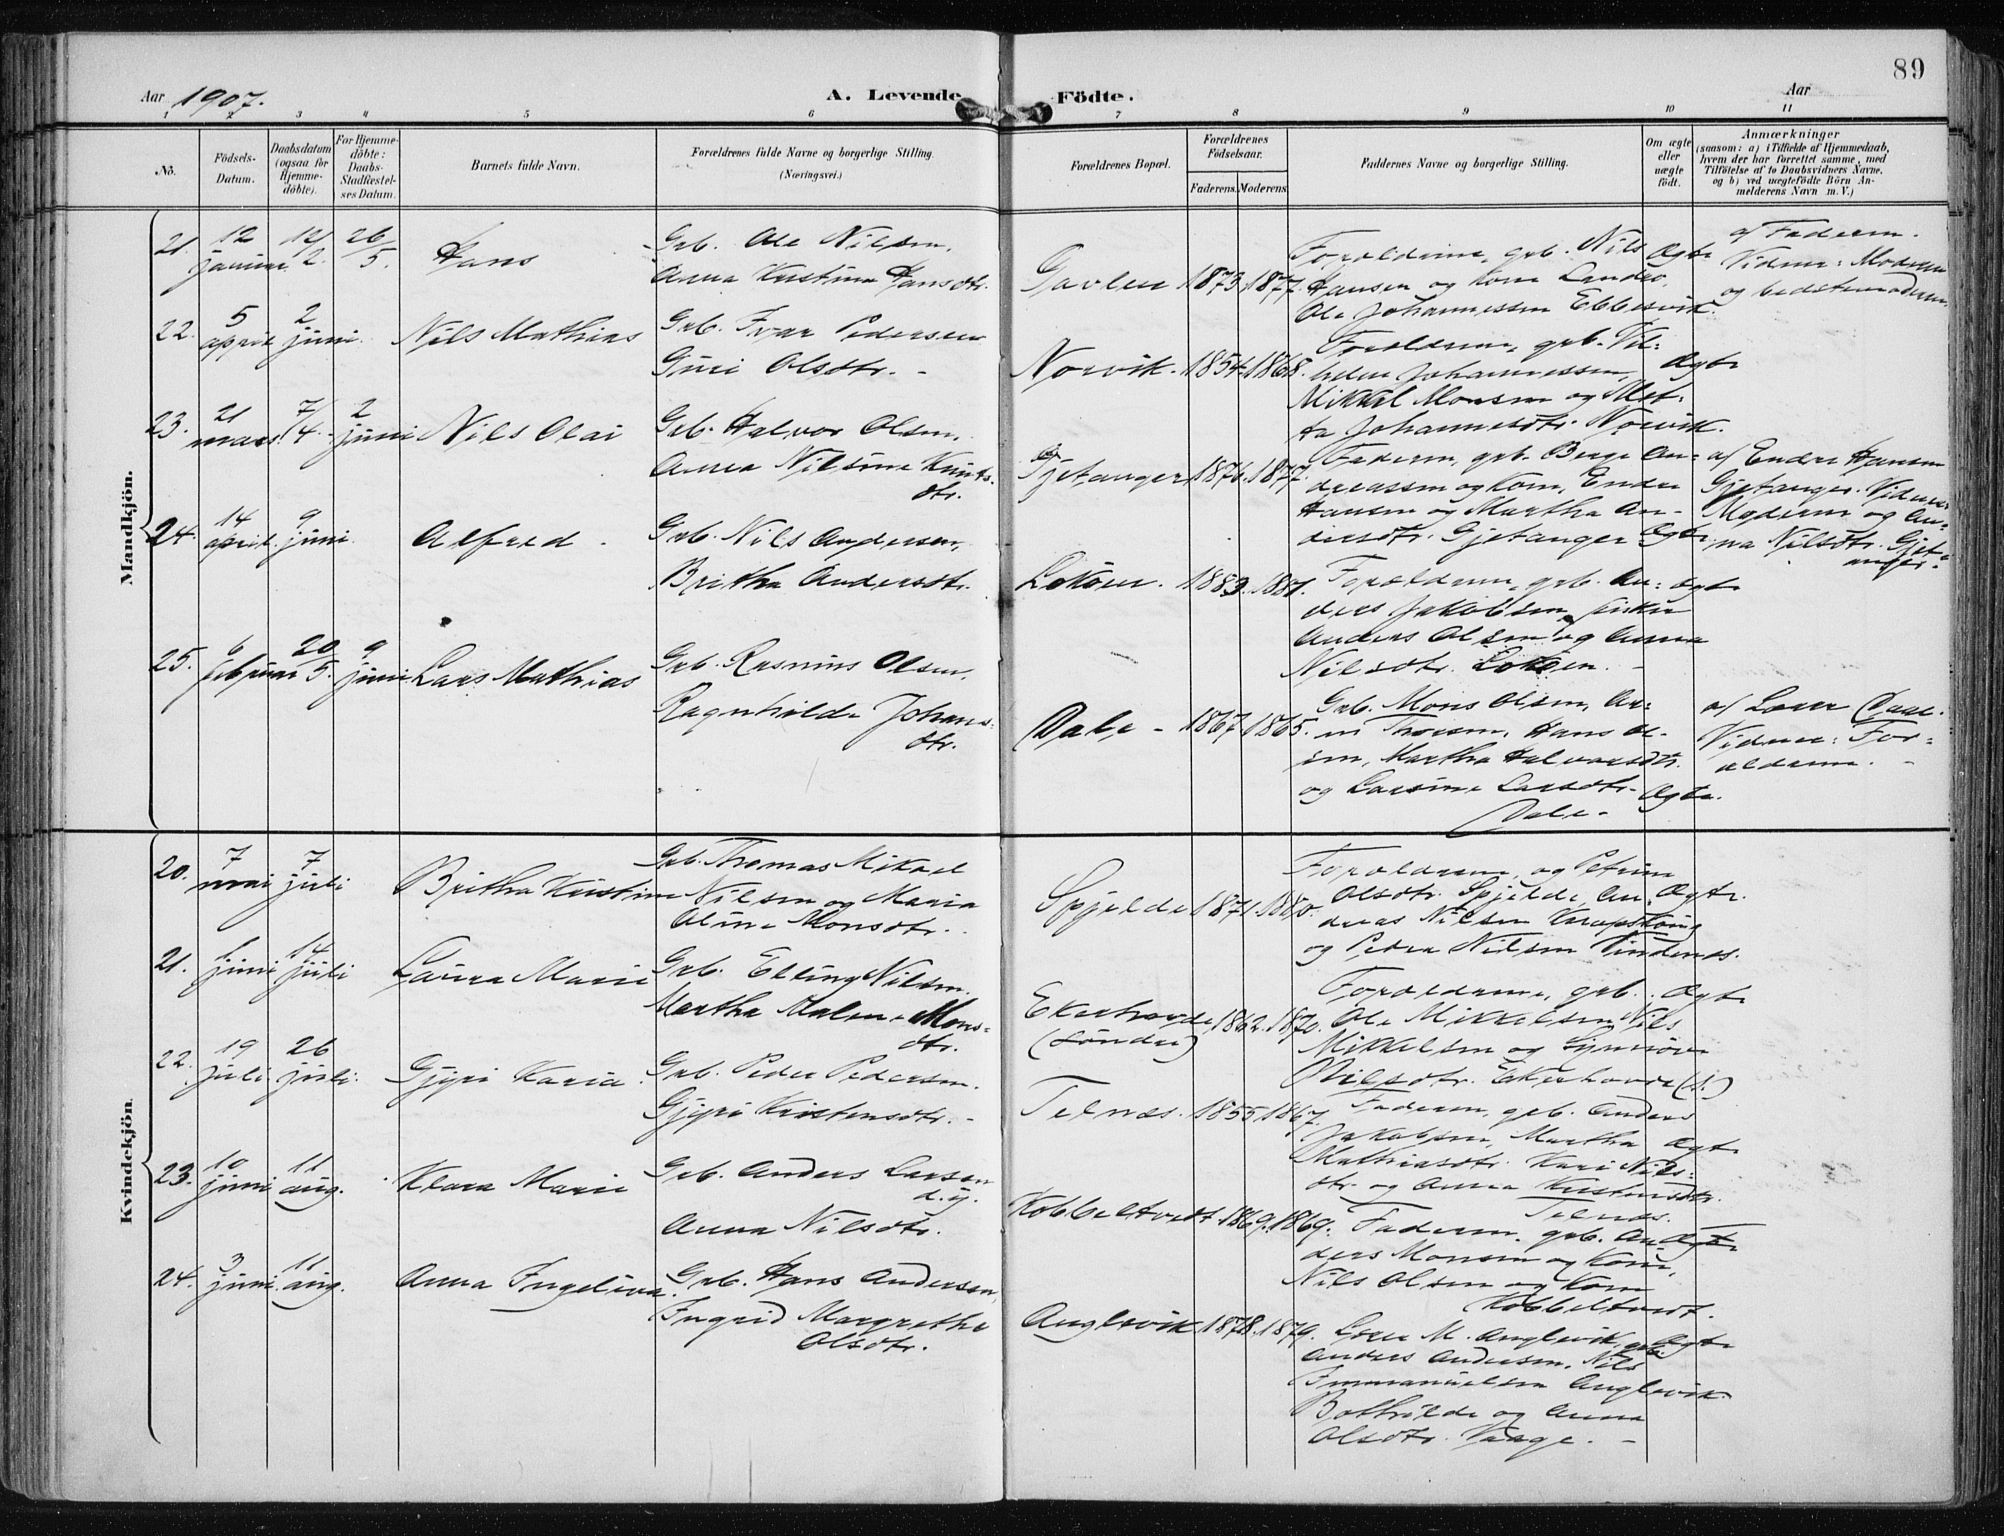 89
Aar 1907.
A. Levende Födte.
Aar
1 2 3 4 5 6 7 8 9 10 11
No.
Födsels-Datum.
Daabsdatum (ogsaa for Hjemme-döbte).
For Hjemme-döbte: Daabs-Stadfæstel-ses Datum.
Barnets fulde Navn.
Forældrenes fulde Navne og borgerlige Stilling.
(Næringsvei.)
Forældrenes Bopæl.
Forældrenes Födselsaar.
Faderens. Moderens.
Faddernes Navne og borgerlige Stilling.
Om ægte eller uægte födt.
Anmærkninger
(saasom: a) i Tilfælde af Hjemmedaab,
hvem der har forrettet samme, med
Tilföielse af to Daabsvidners Navne,
og b) ved uægtefödte Börn An-
melderens Navn m. V.)
Mandkjön.
21. 12 januar. 12/2. 26/5. Hans
Grb. Ole Nilsen,
Anna Kristine Hansdtr.
Gavlen 1873. 1877.
Forældrene, grb. Nils
Hansen og Kone Landro,
Ole Johannessen Ebbesvik.
Ægte
af Faderen.
Vidner: Moderen
og bedstemoderen
22. 5 april 2 juni. Nils Mathias
Grb. Ivar Pedersen
Guri Olsdtr. -
Norvik. 1854. 1868.
Forældrene, grb. Vil-
helm Johannessen,
Mikkel Monsen og Met-
ta Johannesdtr. Norvik.
Ægte
23. 21 mars 7/4. 2 juni Nils Olai
Grb. Halvor Olsen,
Anna Nilsine Knuts-
dtr.
Gjetanger 1876. 1877.
Faderen, grb. Berge An-
dreassen og Kone, Endre
Hansen og Martha An-
dersdtr. Gjetanger
Ægte
af Endre Hansen
Gjetanger. Vidner
Moderen og An-
na Nilsdtr. Gjet-
anger.
24. 14 april. 9 juni. Alfred -
Grb. Nils Andersen,
Britha Andersdtr.
Lokøen. 1883. 1881.
Forældrene, grb. An-
ders Jakobsen, fisker
Anders Olsen og Anna
Nilsdtr. Lokøen. -
Ægte
25. 6 februar 20/5. 9 juni Lars Mathias
Grb. Rasmus Olsen,
Ragnhilde Johans-
dtr.
Dale - 1867. 1865.
Grb. Mons Olsen, Ar-
ne Thorsen, Hans Ol-
sen, Martha Halvorsdtr.
og Larsine Larsdtr.
Dale -
Ægte.
af Lærer Daae.
Vidner: For-
ældrene. -
Kvindekjön.
20. 7 mai 7 juli Britha Kristine
Grb. Thomas Mikael
Nilsen og Maria
Oline Monsdtr.
Spjelde 1871. 1880.
Forældrene, og Petrine
Olsdtr. Spjelde, An-
dreas Nilsen
og Peder Nilsen Vindenes.
Ægte.
21. 1 juni 14 juli Laura Marie
Grb. Elling Nilsen.
Martha Malene Mons-
dtr.
Ekerhovde (søndre) 1862. 1870.
Forældrene, grb.
Ole Mikkelsen, Nils
Mikkelsen og Synnøve
Nilsdtr. Ekerhovde (s.)
Ægte
22. 19 juli. 26 juli. Gjøri Karia.
Grb. Peder Pedersen.
Gjøri Kristensdtr. -
Telnæs. 1855. 1867.
Faderen, grb. Anders
Jakobsen, Martha
Mathiasdtr. Kari Nils-
dtr. og Anna Kristensdtr.
Telnæs.
Ægte
23. 10 juni 11 aug. Klara Marie
Grb. Anders Larsen
d.y.
Anna Nilsdtr.
Kobbeltvedt. 1869. 1869.
Faderen, grb. An-
ders Monsen og Kone,
Nils Olsen og Kone
Kobbeltvedt.
Ægte
24. 3 juni. 11 aug. Anna Ingeliva.
Grb. Hans Andersen,
Ingrid Margrethe
Olsdtr.
Anglevik 1878. 1879.
Lars M. Anglevik, grb.
Anders Andersen, Nils
Immanuelsen Anglevik.
Bothilde og Anna
Olsdtr. Vaage. -
Ægte